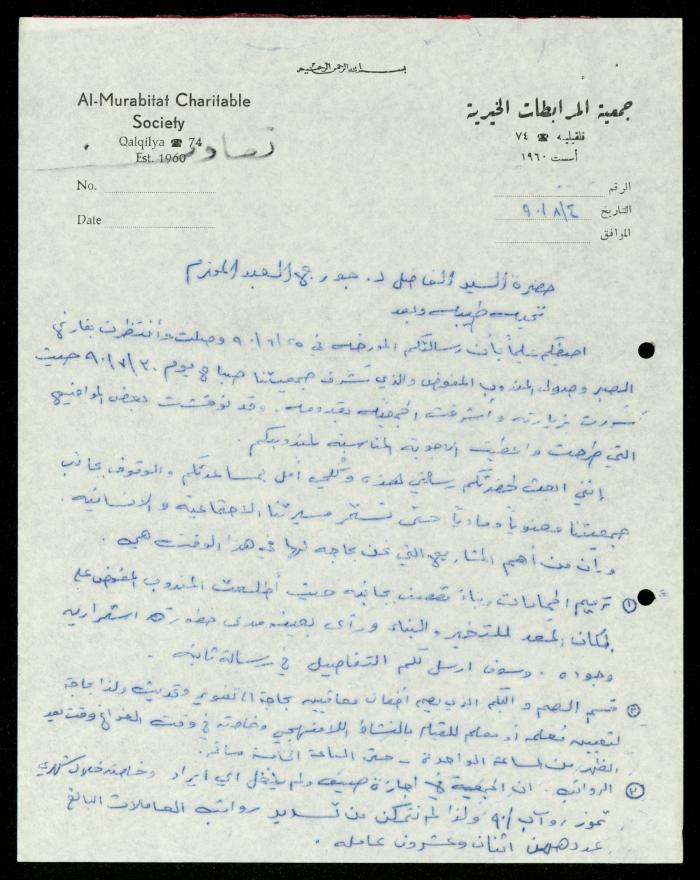 بسم الله الرحمن الرحيم
Al-Murabitat Charitable
Society
Qalqilya ☎ 74
Est. 1960
جمعية المرابطات الخيرية
قلقيلية ☎ ٧٤
أسست ١٩٦٠
No.
Date
الرقم
التاريخ ٩٠/٨/٤
الموافق
حضرة السيد الفاضل د. جورج العبد المحترم
تحية طيبة وبعد
احيطكم علماً بأن رسالتكم المؤرخة في ٩٠/٦/٢٥ وصلت وأنتظرت بفارغ
الصبر وصول المندوب المفوض والذي شرف جمعيتنا صباح يوم ٩٠/٧/٣٠ حيث
سررت بزيارته و الجمعية بقدومه. وقد نوقشت بعض المواضيع
التي طرحت واعطيت الاجوبة المناسبة لمندوبكم.
إنني ابعث لحضرتكم رسالتي هذه وكلي أمل بمساعدتكم والوقوف بجانب
جمعيتنا معنوياً ومادياً حتى تستمر مسيرتنا الاجتماعية والانسانية.
وان من أهم المشاريع التي نحن بحاجة لها في هذا الوقت هي.
① ترميم الحمامات وبناء بجانبه حيث أطلعت المندوب المفوض على
المكان المعد للترميم والبناء ورأى بعينه مدى خطورة استمرارية
وجوده. وسوف ارسل لكم التفاصيل في رسالة ثانية.
② قسم الصم و البكم الذي يضم أطفال معاقين بحاجة الى تطوير وتحديث ولذا بحاجة
لتعيين معلمه أو معلم للقيام بالنشاط اللامنهجي وخاصة في وقت الفراغ وقت بعد
الظهر من الساعة الواحدة - حتى الساعة الخامسة مساءً.
③ الرواتب. ان الجمعية في اجازة صيف ولم يدخل اي ايراد وخاصة خلال شهري
تموز وآب ٩٠ ولذا لم نتمكن من تسديد رواتب العاملات البالغ
عددهن اثنان وعشرون عاملة.